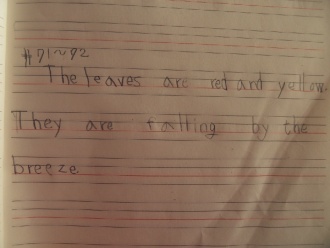 #91~92
The leaves are red and yellow.
They are falling by the
breeze.